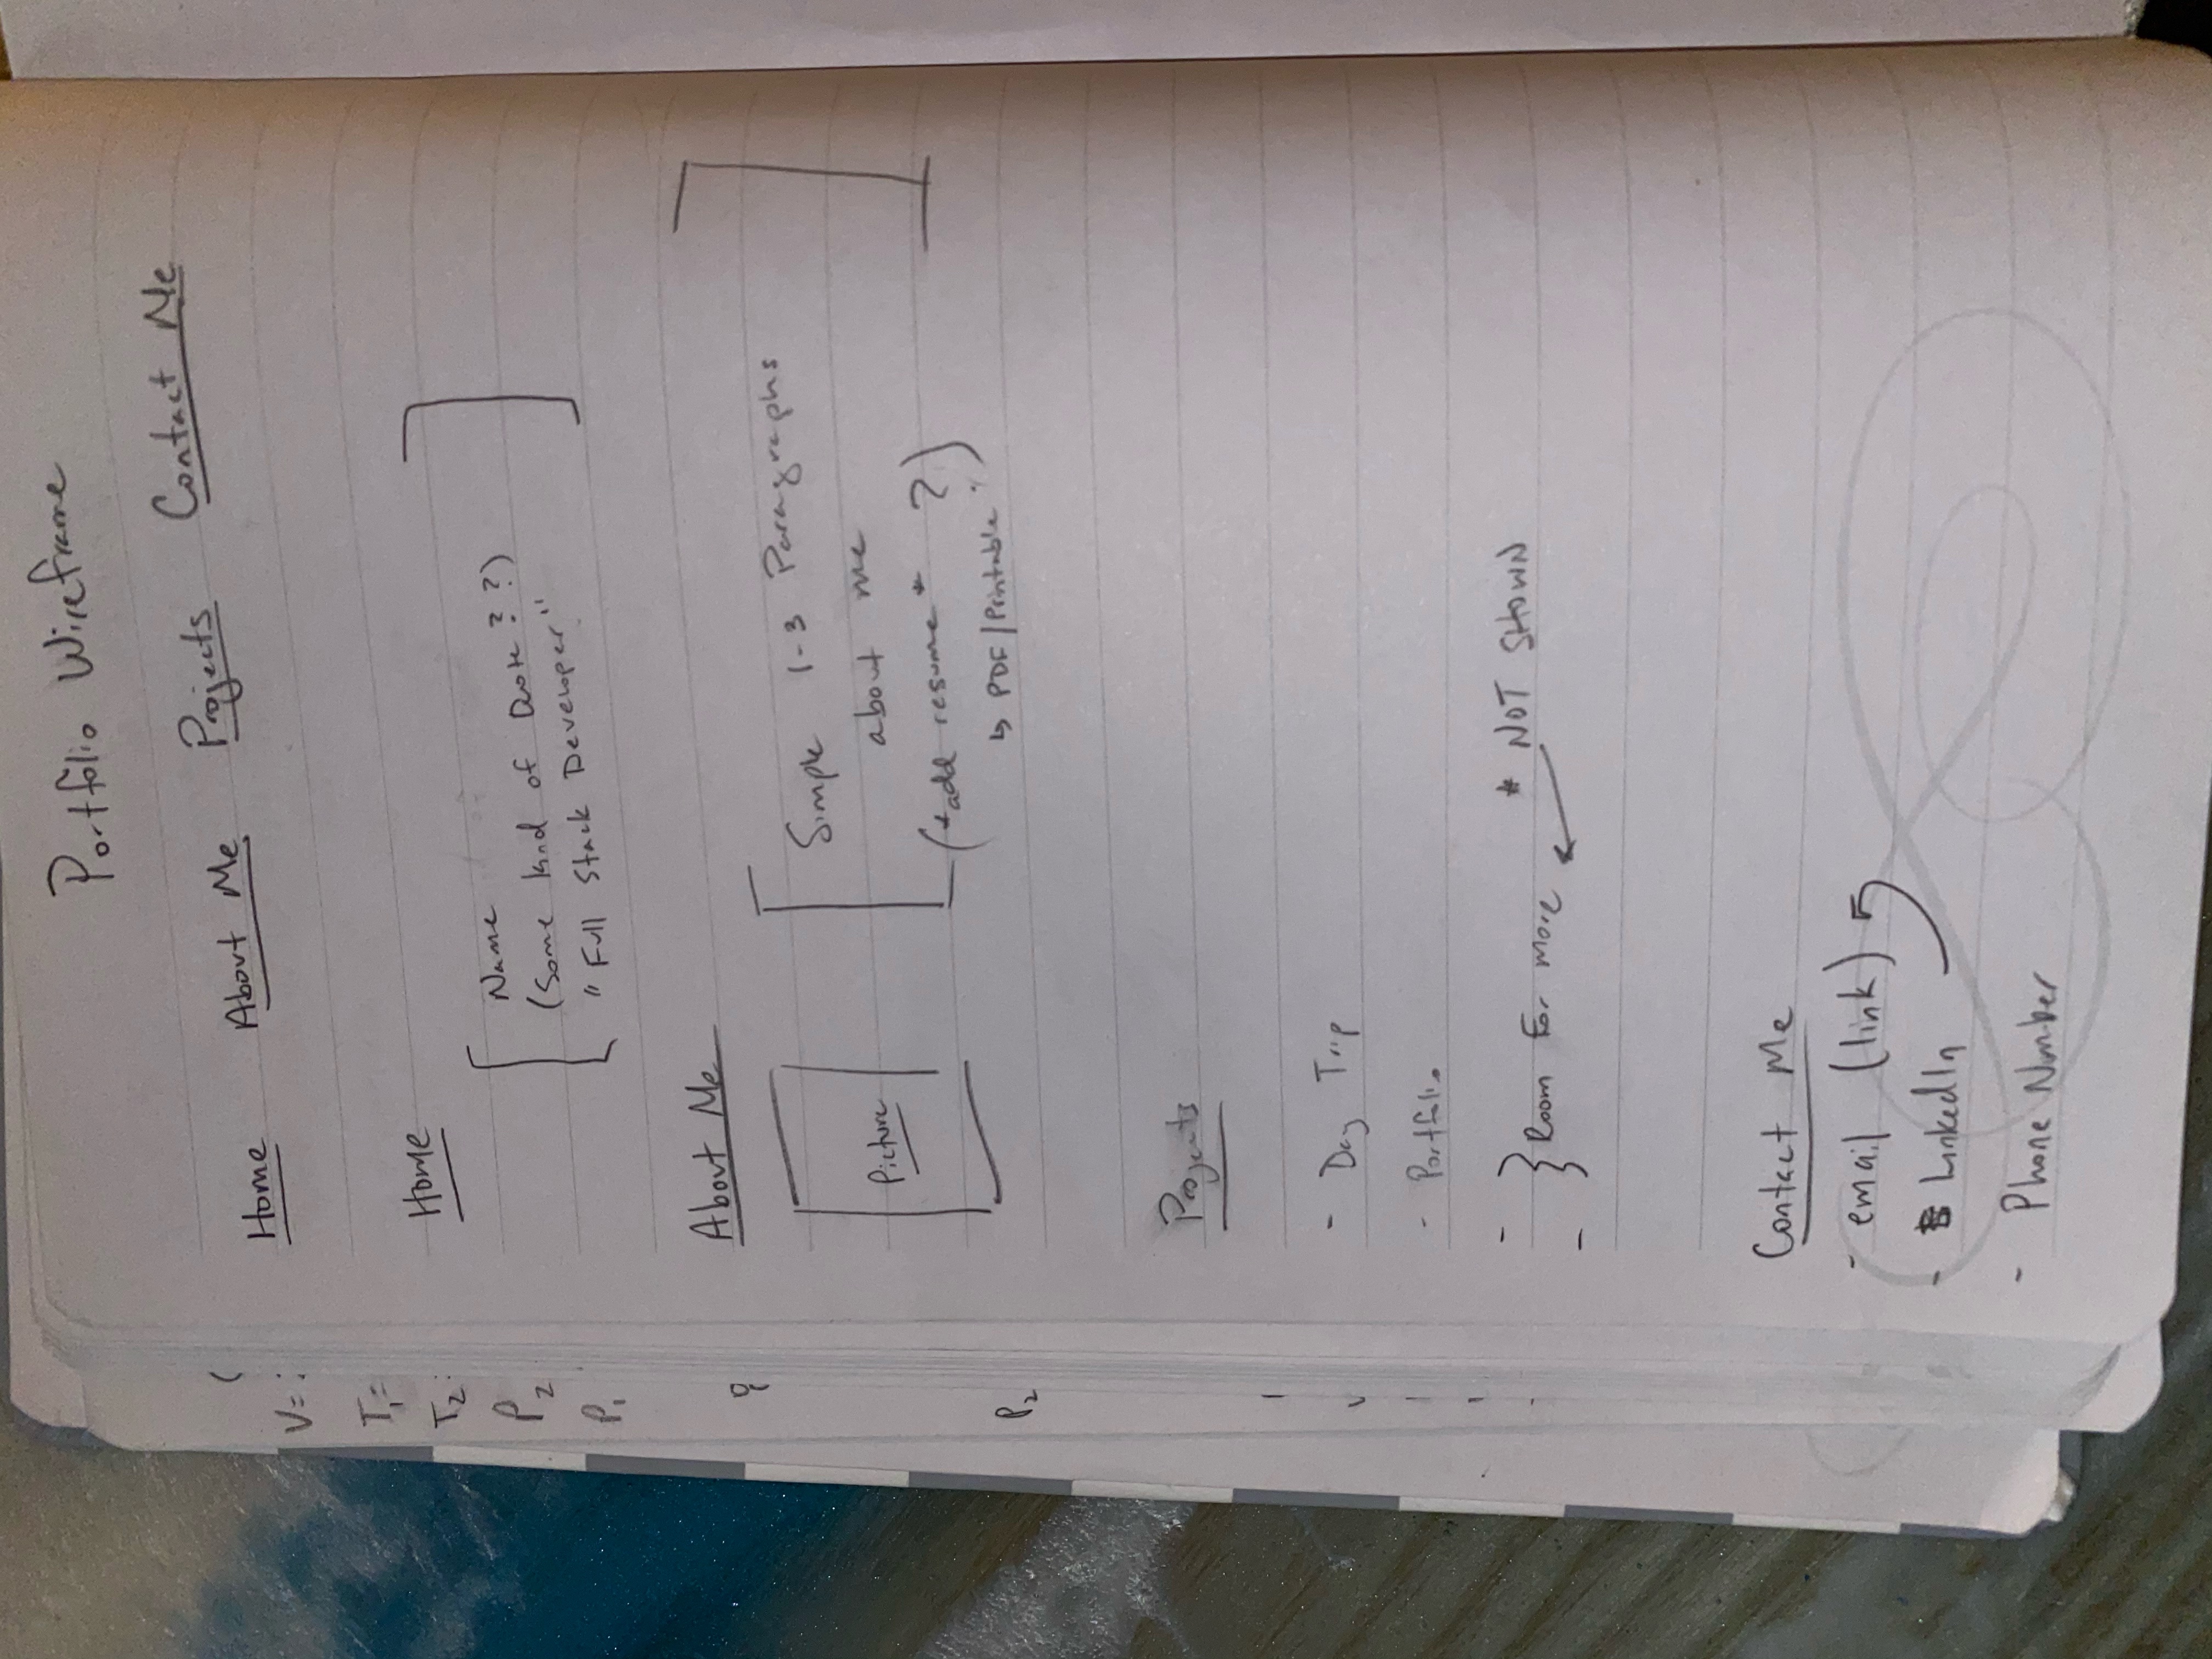 Portfolio Wireframe
Home About Me Projects Contact Me
Home
Name
(Some kind of Quote ? ?)
"Full Stack Developer"
About Me
Picture
Simple 1-3 Paragraphs
about me
(*add resume* ?)
↳ PDF/Printable
Projects
- Day Trip
- Portfolio
-
} Room For more * NOT SHOWN
-
Contact Me
- email (link)
- LinkedIn
- Phone Number
V=
T₁=
T₂
P₂
P₁
P₂